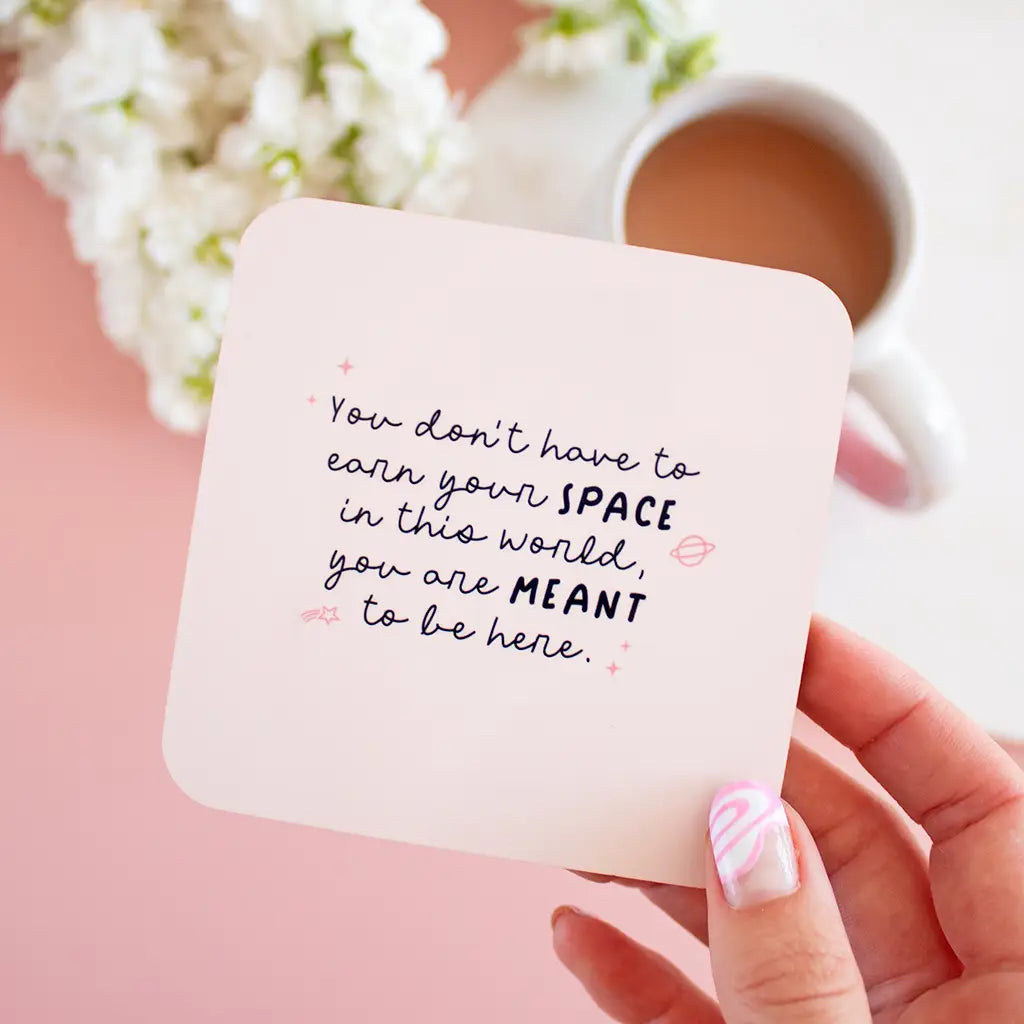 You don't have to
earn your SPACE
in this world,
you are MEANT
to be here.